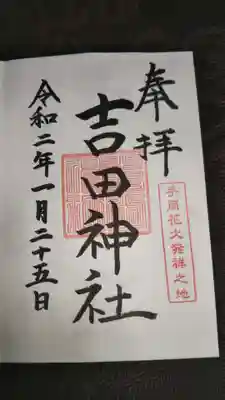 奉拝
手筒花火発祥之地
吉田神社
令和二年一月二十五日